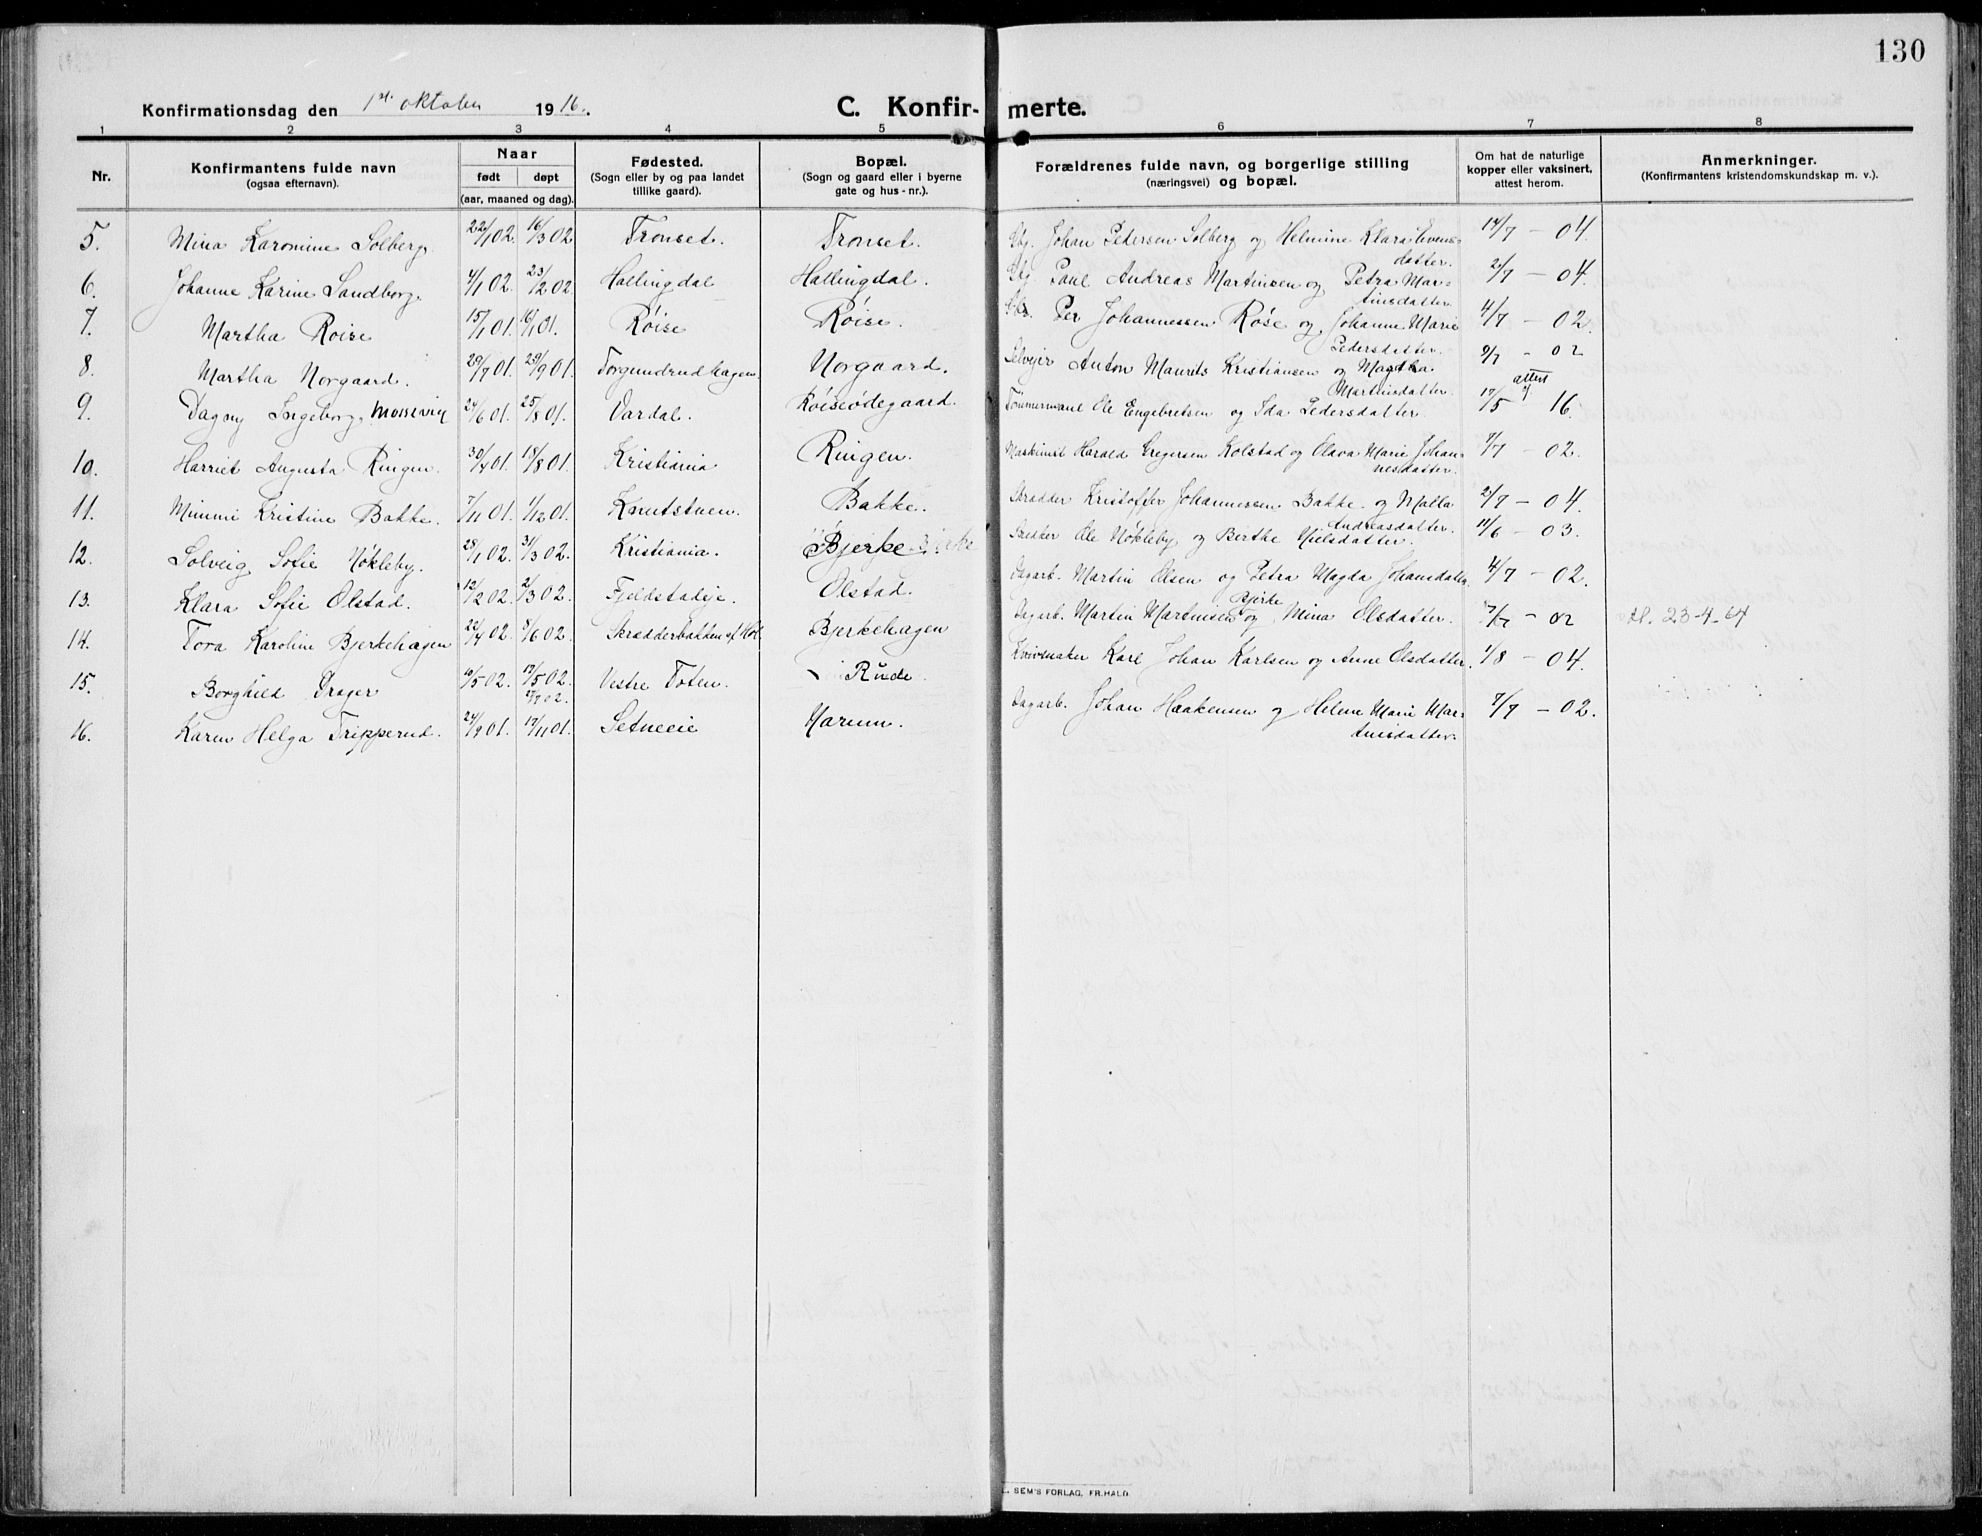 130
Konfirmationsdag den 1st. oktober 1916.
C. Konfirmerte.
1 2 3 4 5 6 7 8
Nr.
Konfirmantens fulde navn
(ogsaa efternavn).
Naar
født døpt
(aar, maaned og dag).
Fødested.
(Sogn eller by og paa landet
tillike gaard).
Bopæl.
(Sogn og gaard eller i byerne
gate og hus-nr.).
Forældrenes fulde navn, og borgerlige stilling
(næringsvei) og bopæl.
Om hat de naturlige
kopper eller vaksinert,
attest herom.
Anmerkninger.
(Konfirmantens kristendomskundskap m. v.).
5. Mina Karonine Solberg. 22/1 02. 16/3 02 Tronset. Tronset. Johan Pedersen Solberg og Helmine Klara Evens- 14/7 - 04.
datter.
6. Johanne Karine Sandborg. 4/1 02. 23/2 02. Hallingdal Hallingdal. Paul Andreas Martinsen og Petra Mar- 2/7 - 04.
tinsdatter.
7. Martha Røise 15/1 01. 16/1 01. Røise Røise. Per Johannessen Røse og Johanne Marie 4/7 - 02.
Pedersdatter.
8. Martha Norgaard. 29/7 01. 29/9 01. Torgundrudhagen Norgaard. Selveier Anton Maurits Kristiansen og Martha 9/7 - 02
Marthinsdatter. attest
9. Dagny Ingeborg Mosseviy 24/6 01. 25/8 01. Vardal. Røiseødegaard. Tømmermand Ole Engebretsen og Ida Pedersdatter. 17/5 16.
10. Harriet Augusta Ringen. 30/4 01. 18/8 01. Kristiania Ringen. Maskinist Harald Gregersen Kolstad og Olava Marie Johan- 7/7 - 02.
nesdatter.
11. Mimmi Kristine Bakke. 7/11 01. 1/12 01. Knutstuen. Bakke. Skrædder Kristoffer Johannessen Bakke og Malla 2/7 - 04.
Andreasdatter.
12. Solveig Sofie Nøkleby. 28/1 02. 31/3 02. Kristiania. Bjerke. Ole Nøkleby og Birthe Nielsdatter. 11/6 - 03.
13. Klara Sofie Olstad. 12/2 02. 2/3 02. Fjeldstadeje. Olstad. Dagarb. Martin Olsen og Petra Magda Johansdatter 4/7 - 02.
Bjerke
14. Tora Karoline Bjerkehagen 22/4 02. 8/6 02. Skrædderbakken af Hol. Bjerkehagen Dagarb. Martin Martinsen og Mina Olsdatter. 7/7 - 02 23-4-64
15. Borghild Drager 10/5 02. 17/5 02. Vestre Toten. Rude. Karl Johan Karlsen og Anne Olsdatter. 1/8 - 04.
16. Karen Helga Tripperud. 24/9 01. 17/11 01. Setneeie Narum. Dagarb. Johan Haakensen og Helene Marie Mar- 7/7 - 02.
tinsdatter.
SEM'S FORLAG, FR.HALD.